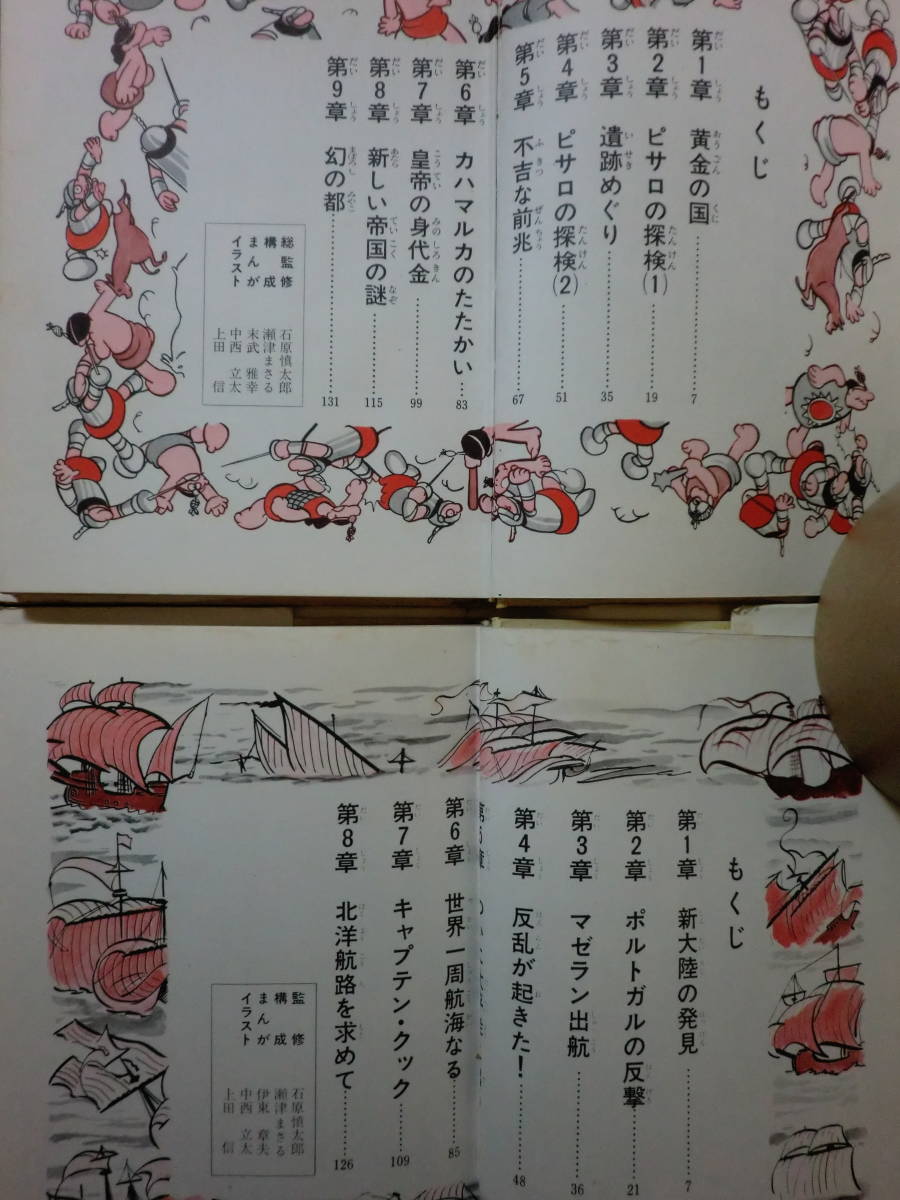 もくじ
第1章 黄金の国 7
第2章 ピサロの探検(1) 19
第3章 遺跡めぐり 35
第4章 ピサロの探検(2) 51
第5章 不吉な前兆 67
第6章 カハマルカのたたかい 83
第7章 皇帝の身代金 99
第8章 新しい帝国の謎 115
第9章 幻の都 131
総監修 石原慎太郎
構成 瀬津まさる
まんが 末武雅幸
イラスト 中西立太
上田信
もくじ
第1章 新大陸の発見 7
第2章 ポルトガルの反撃 21
第3章 マゼラン出航 36
第4章 反乱が起きた! 48
第5章
第6章 世界一周航海なる 85
第7章 キャプテン・クック 109
第8章 北洋航路を求めて 126
監修 石原慎太郎
構成 瀬津まさる
まんが 伊東章夫
イラスト 中西立太
上田信